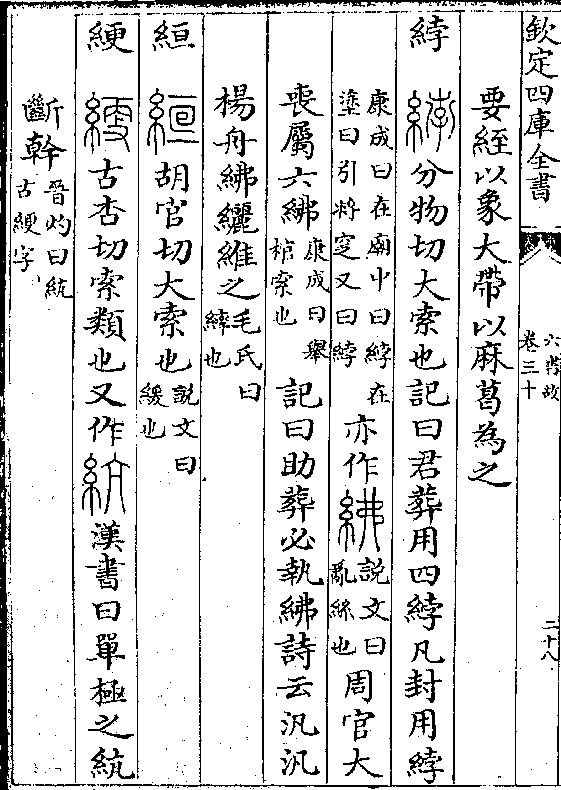 欽定四庫全書
六書故
卷三十
二十八
要絰以象大帶以麻葛為之
綍 綍 分物切大索也記曰君葬用四綍凡封用綍
康成曰在廟中曰綍在
塗曰引將窆又曰綍
亦作紼
説文曰
亂絲也
周官大
喪屬六紼
康成曰舉
棺索也
記曰助葬必執紼詩云汎汎
楊舟紼纚維之
毛氏曰
繂也
絙 絙 胡官切大索也
説文曰
緩也
綆 綆 古杏切索類也又作統 漢書曰單極之統
斷幹
晉灼曰統
古綆字